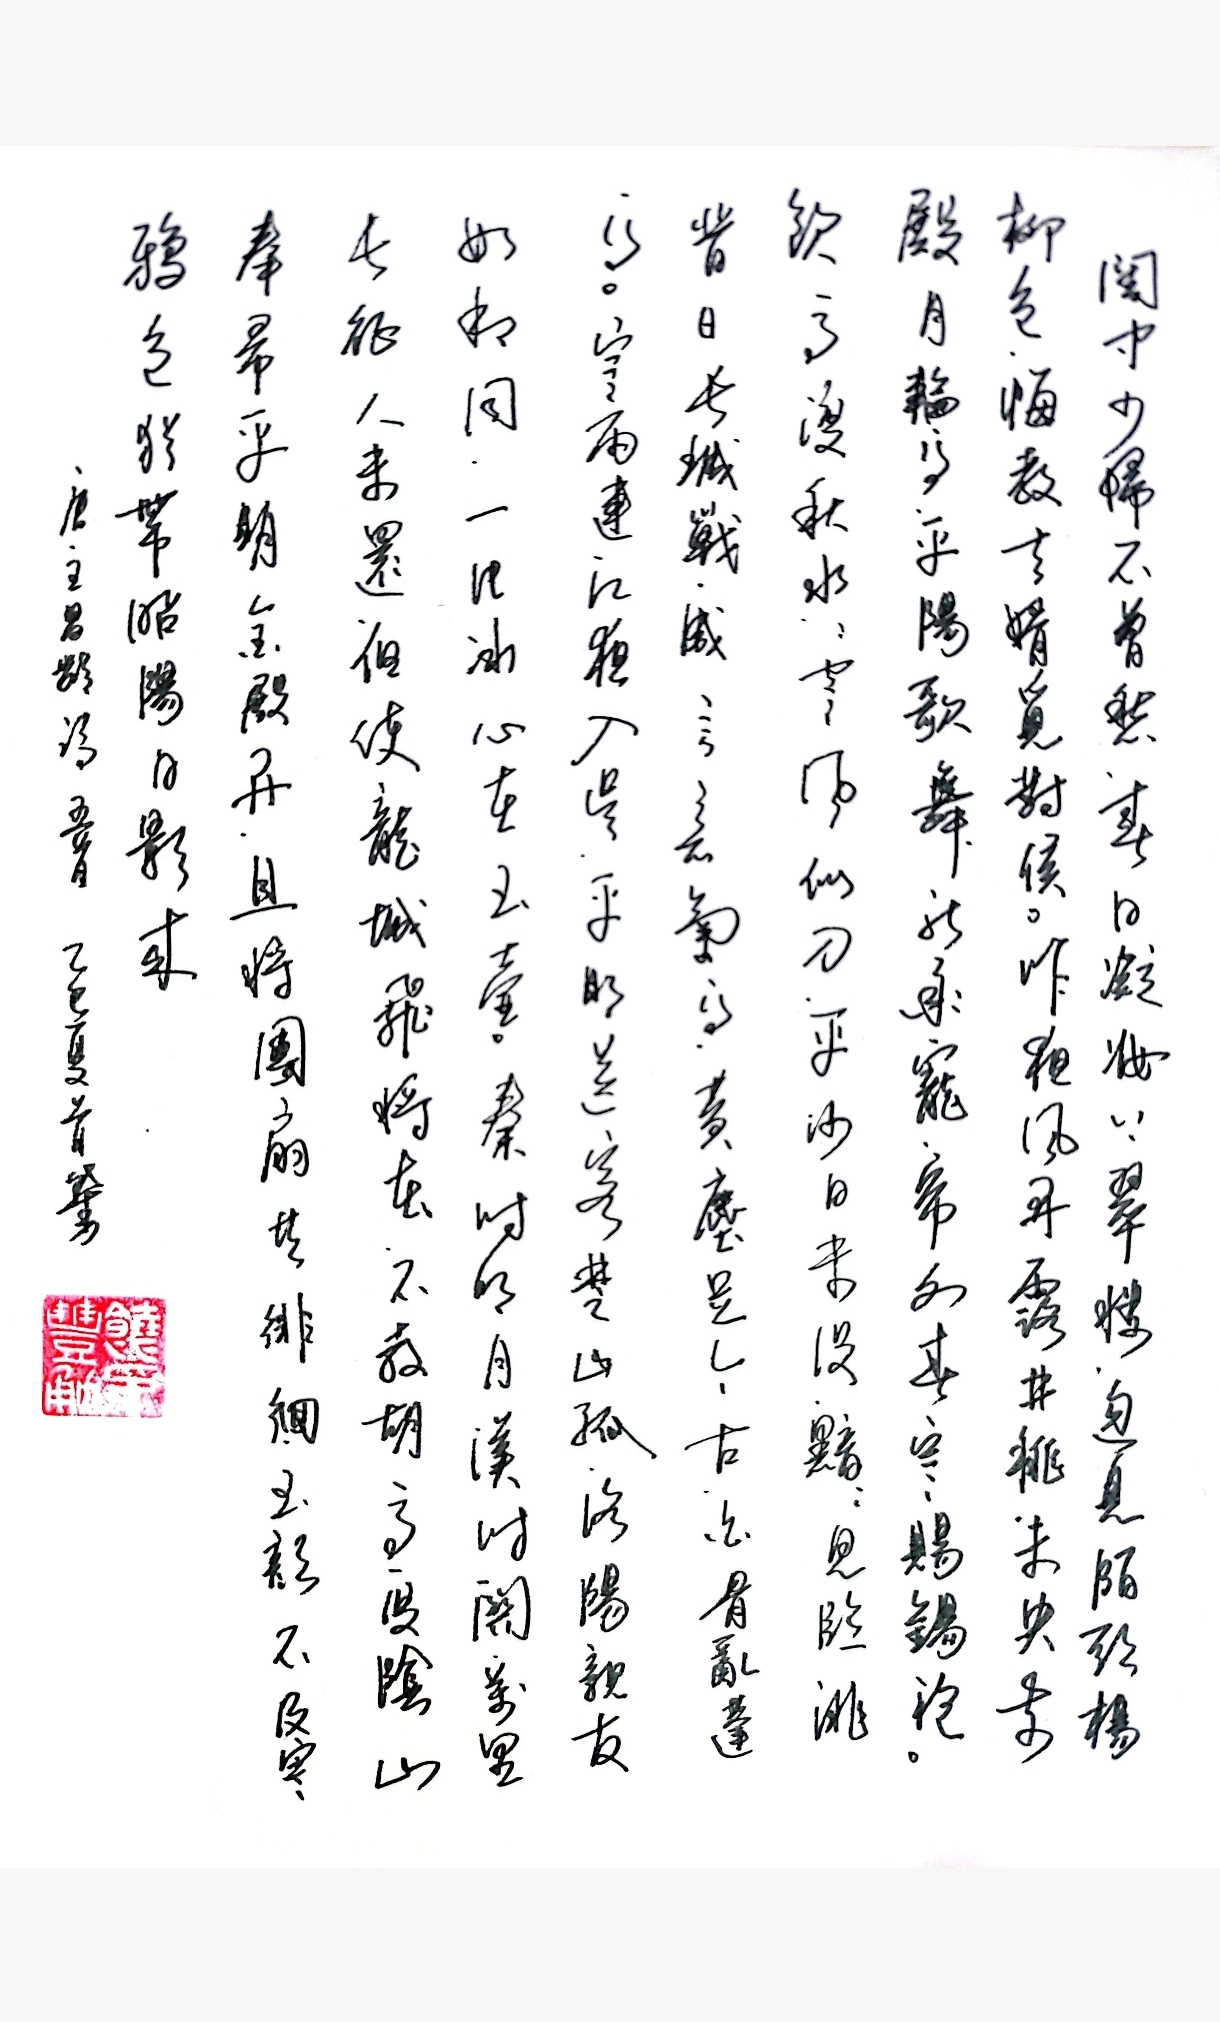 閨中少婦不曾愁春日凝妝上翠樓忽見陌頭楊
柳色悔教夫婿覓封侯。昨夜風開露井桃未央前
殿月輪高平陽歌舞新承寵簾外春寒賜錦袍。
飲馬渡秋水水寒風似刀平沙日未沒黯黯見臨洮
昔日長城戰咸言意氣高黃塵足今古白骨亂蓬
蒿。寒雨連江夜入吳平明送客楚山孤洛陽親友
如相問一片冰心在玉壺。秦時明月漢時關萬里
長征人未還但使龍城飛將在不教胡馬度陰山
奉帚平明金殿開且將團扇共徘徊玉顏不及寒
鴉色猶帶昭陽日影來
唐王昌齡詩五首 乙巳夏首